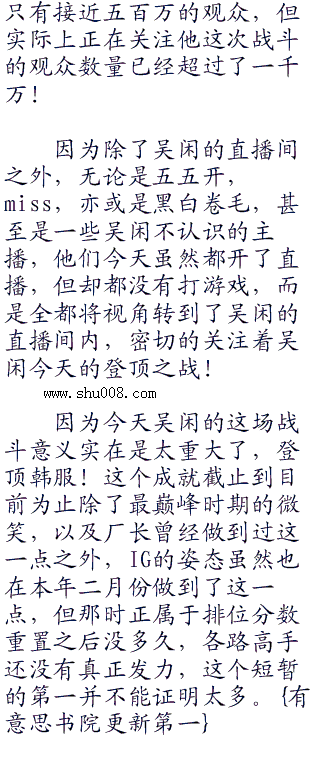 只有接近五百万的观众，但
实际上正在关注他这次战斗
的观众数量已经超过了一千
万！
因为除了吴闲的直播间
之外，无论是五五开，
miss，亦或是黑白卷毛，甚
至是一些吴闲不认识的主
播，他们今天虽然都开了直
播，但却都没有打游戏，而
是全都将视角转到了吴闲的
直播间内，密切的关注着吴
闲今天的登顶之战！
www.shu008.com
因为今天吴闲的这场战
斗意义实在是太重大了，登
顶韩服！这个成就截止到目
前为止除了最巅峰时期的微
笑，以及厂长曾经做到过这
一点之外，IG的姿态虽然也
在本年二月份做到了这一
点，但那时正属于排位分数
重置之后没多久，各路高手
还没有真正发力，这个短暂
的第一并不能证明太多。{有
意思书院更新第一}